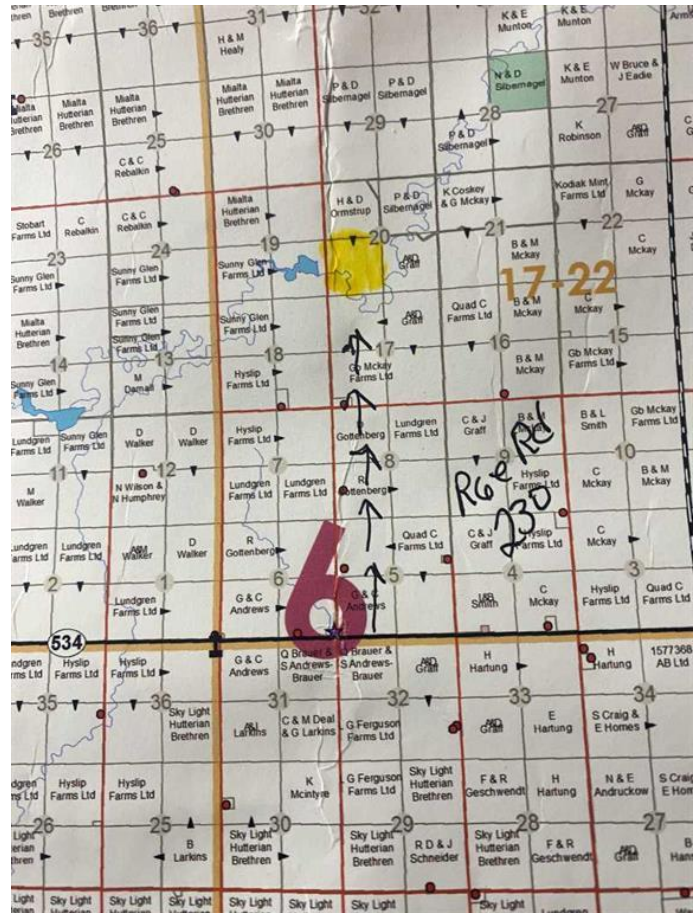 Brethren
Brethren
31
32
K & E
Munton
K & E
Munton
35
36
H & M
Healy
Mialta
Hutterian
Brethren
Mialta
Hutterian
Brethren
Mialta
Hutterian
Brethren
Mialta
Hutterian
Brethren
P & D
Silbernagel
P & D
Silbernagel
N & D
Silbernagel
K & E
Munton
W Bruce &
J Eadie
26
25
30
29
28
27
P & D
Silbernagel
K
Robinson
C & C
Rebalkin
Stobart
Farms Ltd
C
Rebalkin
C & C
Rebalkin
Mialta
Hutterian
Brethren
H & D
Ormstrup
P & D
Silbernagel
K Coskey
& G Mckay
Kodiak Mint
Farms Ltd
G
Mckay
23
24
19
20
21
22
Sunny Glen
Farms Ltd
Sunny Glen
Farms Ltd
Sunny Glen
Farms Ltd
A&D
Graff
B & M
Mckay
C
Mckay
17-22
Mialta
Hutterian
Brethren
Sunny Glen
Farms Ltd
Sunny Glen
Farms Ltd
Sunny Glen
Farms Ltd
A&D
Graff
Quad C
Farms Ltd
B & M
Mckay
C
Mckay
14
13
18
17
16
15
Sunny Glen
Farms Ltd
M
Damall
Hyslip
Farms Ltd
Gb Mckay
Farms Ltd
B & M
Mckay
Gb Mckay
Farms Ltd
Lundgren
Farms Ltd
Sunny Glen
Farms Ltd
D
Walker
D
Walker
Hyslip
Farms Ltd
Gottenberg
Lundgren
Farms Ltd
C & J
Graff
B & M
B & L
Smith
Gb Mckay
Farms Ltd
11
12
7
8
9
10
M
Walker
N Wilson &
N Humphrey
Lundgren
Farms Ltd
Lundgren
Farms Ltd
R
Gottenberg
Hyslip
Farms Ltd
C
Mckay
B & M
Mckay
Rge Rd
230
Lundgren
Farms Ltd
Lundgren
Farms Ltd
A&M
Walker
D
Walker
R
Gottenberg
Quad C
Farms Ltd
C & J
Graff
Hyslip
Farms Ltd
C
Mckay
2
1
6
5
4
3
Lundgren
Farms Ltd
G & C
Andrews
6
G & C
Andrews
Smith
C
Mckay
Hyslip
Farms Ltd
Quad C
Farms Ltd
534
Hyslip
Farms Ltd
Hyslip
Farms Ltd
G & C
Andrews
Q Brauer &
S Andrews-
Brauer
Brauer &
S Andrews-
Brauer
A&D
Graff
H
Hartung
H
Hartung
1577368
AB Ltd
35
36
31
32
33
34
Sky Light
Hutterian
Brethren
A&I
Larkins
C & M Deal
& G Larkins
G Ferguson
Farms Ltd
A&D
Graff
E
Hartung
S Craig &
E Homes
Hyslip
Farms Ltd
Hyslip
Farms Ltd
K
Mcintyre
G Ferguson
Farms Ltd
Sky Light
Hutterian
Brethren
F & R
Geschwendt
H
Hartung
N & E
Andruckow
26
25
30
29
28
27
B
Larkins
Sky Light
Hutterian
Brethren
Sky Light
Hutterian
Brethren
R D & J
Schneider
Sky Light
Hutterian
Brethren
F & R
Geschwendt
A&D
Graff
Sky Light
Sky Light
Sky Light
Sky Light
Sky Light
Sky Light
Sky Light